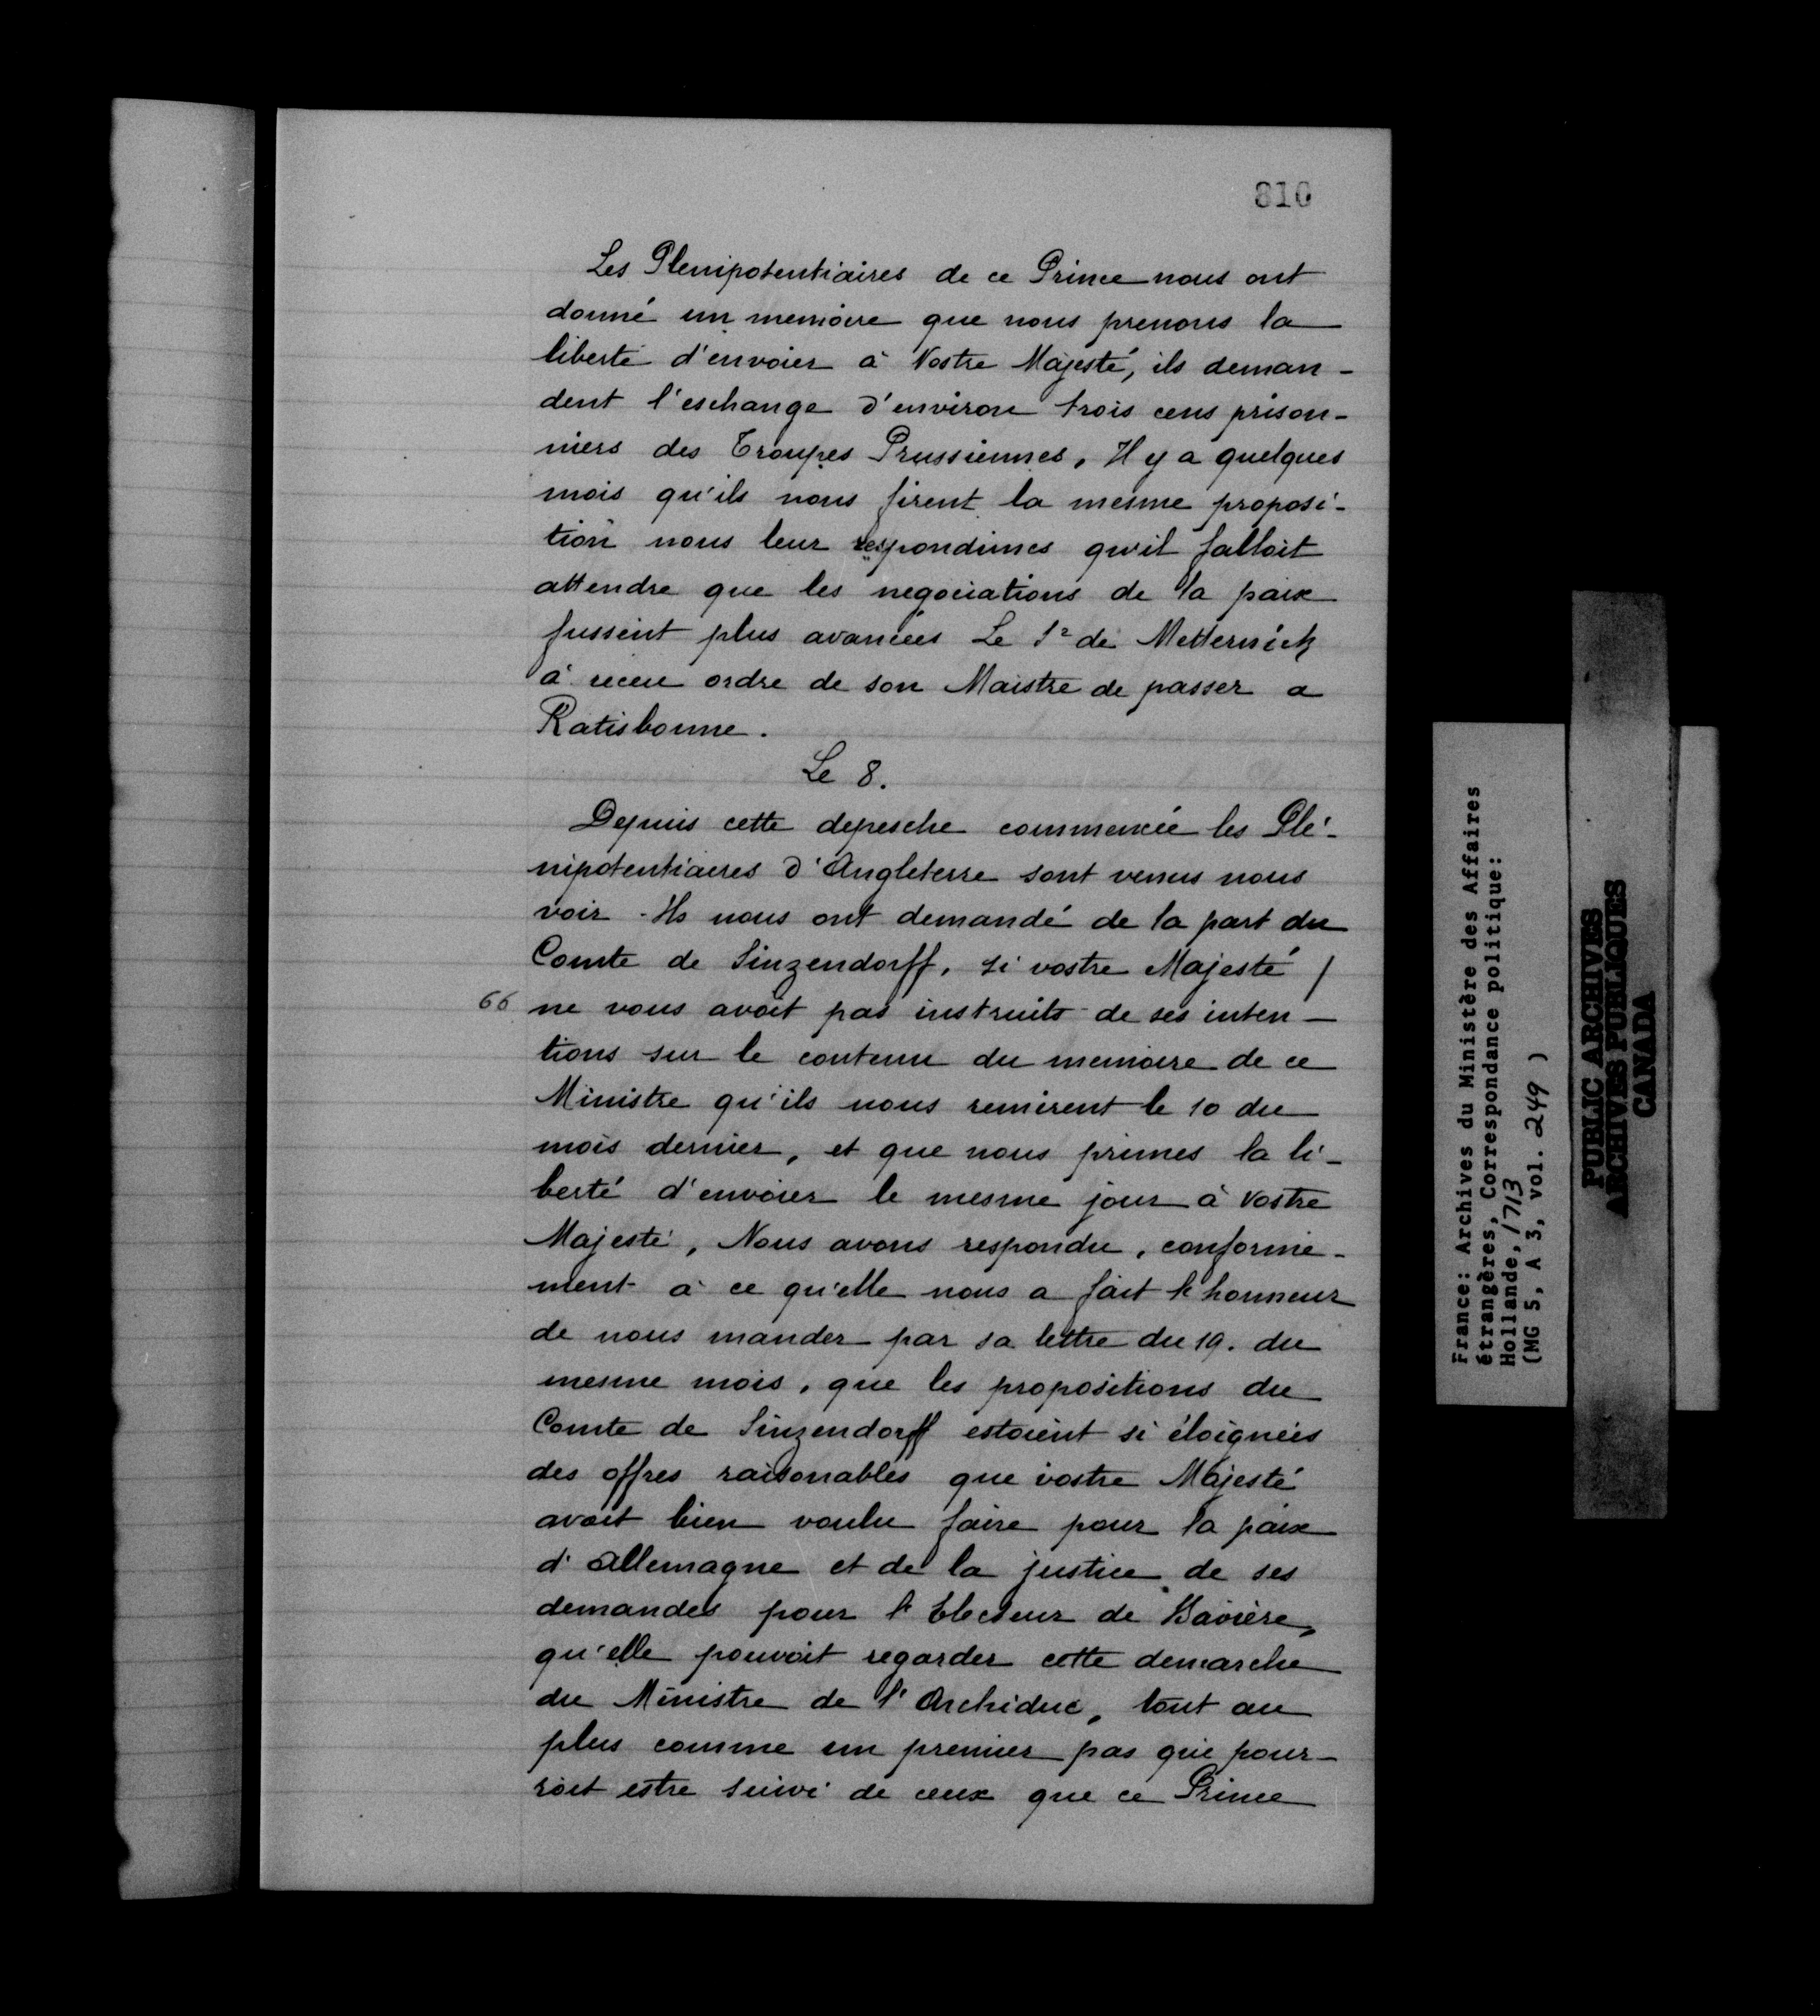 810
Les Plenipotentiaires de ce Prince nous ont
donné un memoire que nous prenons la
liberté d'envoier à Vostre Majesté, ils deman-
dent l'eschange d'environ trois cens prison-
niers des Troupes Prussiennes, Il y a quelques
mois qu'ils nous firent la mesme proposi-
tion nous leur respondimes qu'il falloit
attendre que les negociations de la paix
fussent plus avancées Le Sr de Metternick
à receu ordre de son Maistre de passer a
Ratisbonne.
Le 8.
Depuis cette depesche commencée les Plé-
nipotentiaires d'Angleterre sont venus nous
voir. Ils nous ont demandé de la part du
Comte de Sinzendorff, si vostre Majesté /
66 ne vous avoit pas instruits de ses inten-
tions sur le contenu du memoire de ce
Ministre qu'ils nous remirent le 10 du
mois dernier, et que nous primes la li-
berté d'envoier le mesme jour à vostre
Majesté, Nous avons respondu, conforme-
ment à ce qu'elle nous a fait l'honneur
de nous mander par sa lettre du 19. du
mesme mois, que les propositions du
Comte de Sinzendorff estoient si éloignées
des offres raisonables que vostre Majesté
avoit bien voulu faire pour la paix
d'allemagne et de la justice de ses
demandes pour l'Electeur de Bavière,
qu'elle pouvoit regarder cette demarche
du Ministre de l'Archiduc, tout au
plus comme un premier pas qui pour-
roit estre suivi de ceux que ce Prince
France: Archives du Ministère des Affaires
étrangères, Correspondance politique:
Hollande, 1713
(MG 5, A 3, vol. 249 )
PUBLIC ARCHIVES
ARCHIVES PUBLIQUES
CANADA